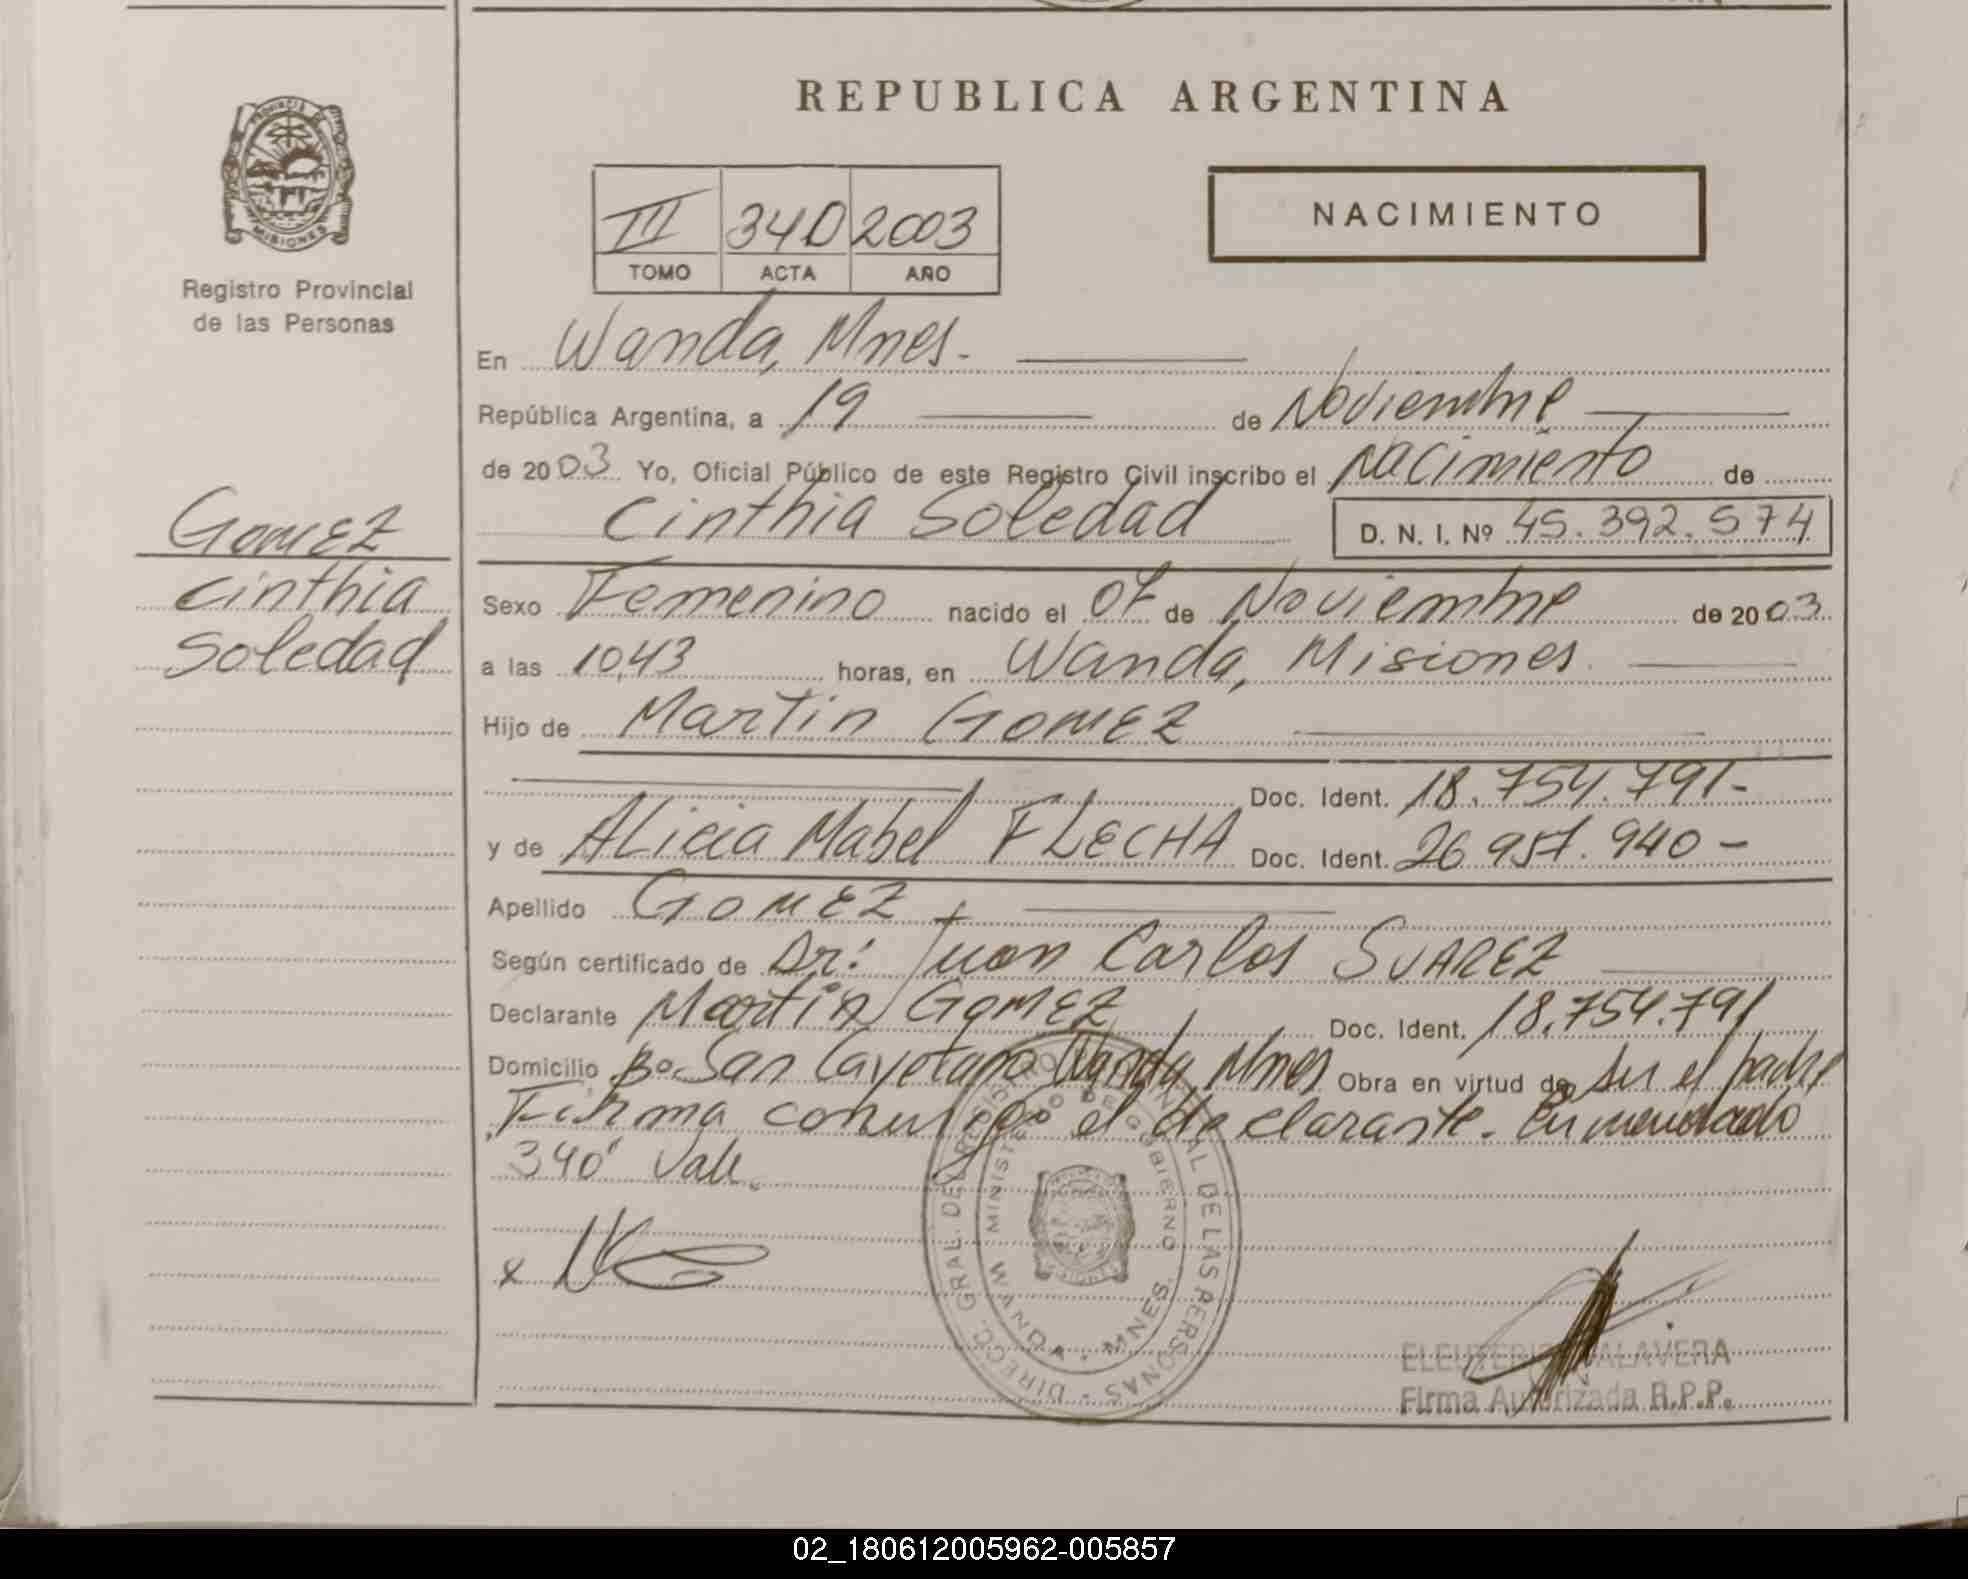 REPUBLICA ARGENTINA
PROVINCIA DE MISIONES
Registro Provincial
de las Personas
III 340 2003
TOMO ACTA AÑO
NACIMIENTO
En Wanda, Mnes.
República Argentina, a 19 de Noviembre
de 2003 Yo, Oficial Público de este Registro Civil inscribo el Nacimiento de
Cinthia Soledad D. N. I. Nº 45.392.574
Gomez
Cinthia
Soledad
Sexo Femenino nacido el 07 de Noviembre de 2003
a las 10,43 horas, en Wanda, Misiones.
Hijo de Martin Gomez
Doc. Ident. 18.754.791-
y de Alicia Mabel FLECHA Doc. Ident. 26 957.940-
Apellido GOMEZ
Según certificado de Dr: Juan Carlos SUAREZ
Declarante Martin GOMEZ Doc. Ident. 18.754.791
Domicilio Bo San Cayetano Wanda, Mnes Obra en virtud de ser el padre
Firma conmigo el declarante. Enmendado
"340" Vale.
x
DIRECC. GRAL. DEL REGISTRO PROVINCIAL DE LAS PERSONAS
MINISTERIO DE GOBIERNO
WANDA - MNES.
MISIONES
ELEUTERIO TALAVERA
Firma Autorizada R.P.P.
02_180612005962-005857